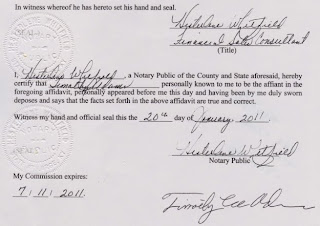 In witness whereof he has hereto set his hand and seal.
Whitfield
Financial Consultant
(Title)
I, Whitfield, a Notary Public of the County and State aforesaid, hereby
certify that Timothy Adams personally known to me to be the affiant in the
foregoing affidavit, personally appeared before me this day and having been by me duly sworn
deposes and says that the facts set forth in the above affidavit are true and correct.
Witness my hand and official seal this the 20th day of January, 2011.
Whitfield
Notary Public
My Commission expires:
7-11-2011
Timothy